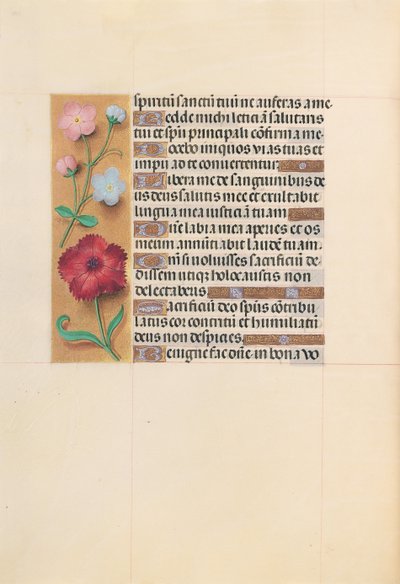 spiritū sanctū tuū ne auferas a me
Redde michi leticiā salutaris
tui et spū principali cōfirma me
Docebo iniquos vias tuas et
impii ad te convertentur
Libera me de sanguinibus de
us deus salutis mee et exultabit
lingua mea iusticiā tuam
Dn̄e labia mea aperies et os
meum annūtiabit laudē tuam
Qm̄ si voluisses sacrificiū de
dissem utique holocaustis non
delectaberis
Sacrificiū deo spūs cōtribu
latus cor contritū et humiliatū
deus non despicies
Benigne fac dn̄e in bona vo